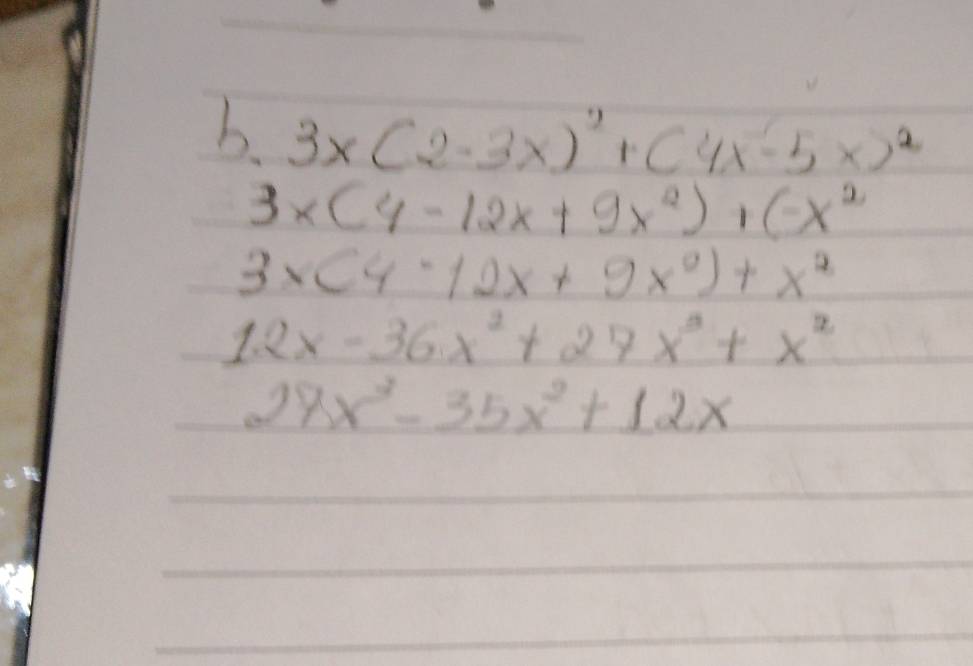 b. 3x(2-3x)² + (4x-5x)²
3x(4-12x+9x²)+(-x²
3x(4-12x+9x²)+x²
12x-36x²+27x³+x²
27x³-35x²+12x